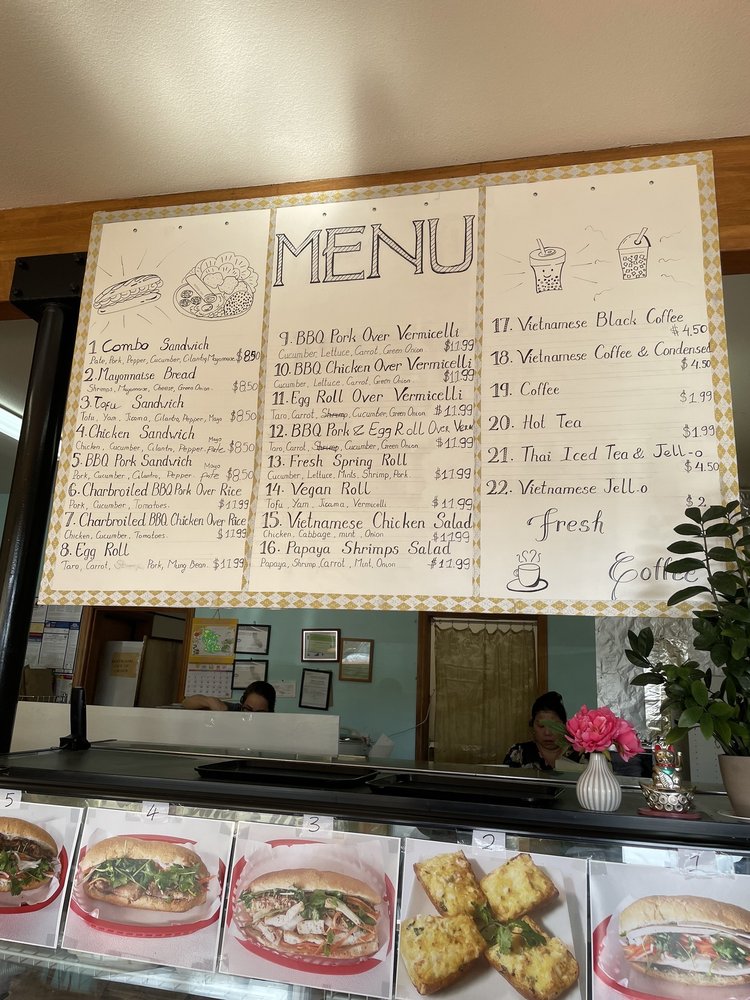 MENU
1 Combo Sandwich
Pate, Pork, Pepper, Cucumber, Cilantro, Mayonnaise. $8.50
2. Mayonnaise Bread
Shrimps, Mayonnaise, Cheese, Green Onion. $8.50
3. Tofu Sandwich
Tofu, Yam, Jicama, Cilantro, Pepper, Mayo $8.50
4. Chicken Sandwich
Chicken, Cucumber, Cilantro, Pepper. Mayo Pate. $8.50
5. BBQ Pork Sandwich
Pork, Cucumber, Cilantro, Pepper. Mayo Pate $8.50
6. Charbroiled BBQ Pork Over Rice
Pork, Cucumber, Tomatoes. $11.99
7. Charbroiled BBQ Chicken Over Rice
Chicken, Cucumber, Tomatoes. $11.99
8. Egg Roll
Taro, Carrot, Shrimp, Pork, Mung Bean. $11.99
9. BBQ Pork Over Vermicelli
Cucumber, Lettuce, Carrot, Green Onion $11.99
10. BBQ Chicken Over Vermicelli
Cucumber, Lettuce, Carrot, Green Onion $11.99
11. Egg Roll Over Vermicelli
Taro, Carrot, Shrimp, Cucumber, Green Onion $11.99
12. BBQ Pork & Egg Roll Over Ver
Taro, Carrot, Shrimp, Cucumber, Green Onion. $11.99
13. Fresh Spring Roll
Cucumber, Lettuce, Mints, Shrimp, Pork. $11.99
14. Vegan Roll
Tofu, Yam, Jicama, Vermicelli $11.99
15. Vietnamese Chicken Salad
Chicken, Cabbage, mint, Onion $11.99
16. Papaya Shrimps Salad
Papaya, Shrimp, Carrot, Mint, Onion $11.99
17. Vietnamese Black Coffee
$4.50
18. Vietnamese Coffee & Condensed
$4.50
19. Coffee
$1.99
20. Hot Tea
$1.99
21. Thai Iced Tea & Jell-o
$4.50
22. Vietnamese Jell-o
$2.
Fresh
Coffee
5
4
3
2
1